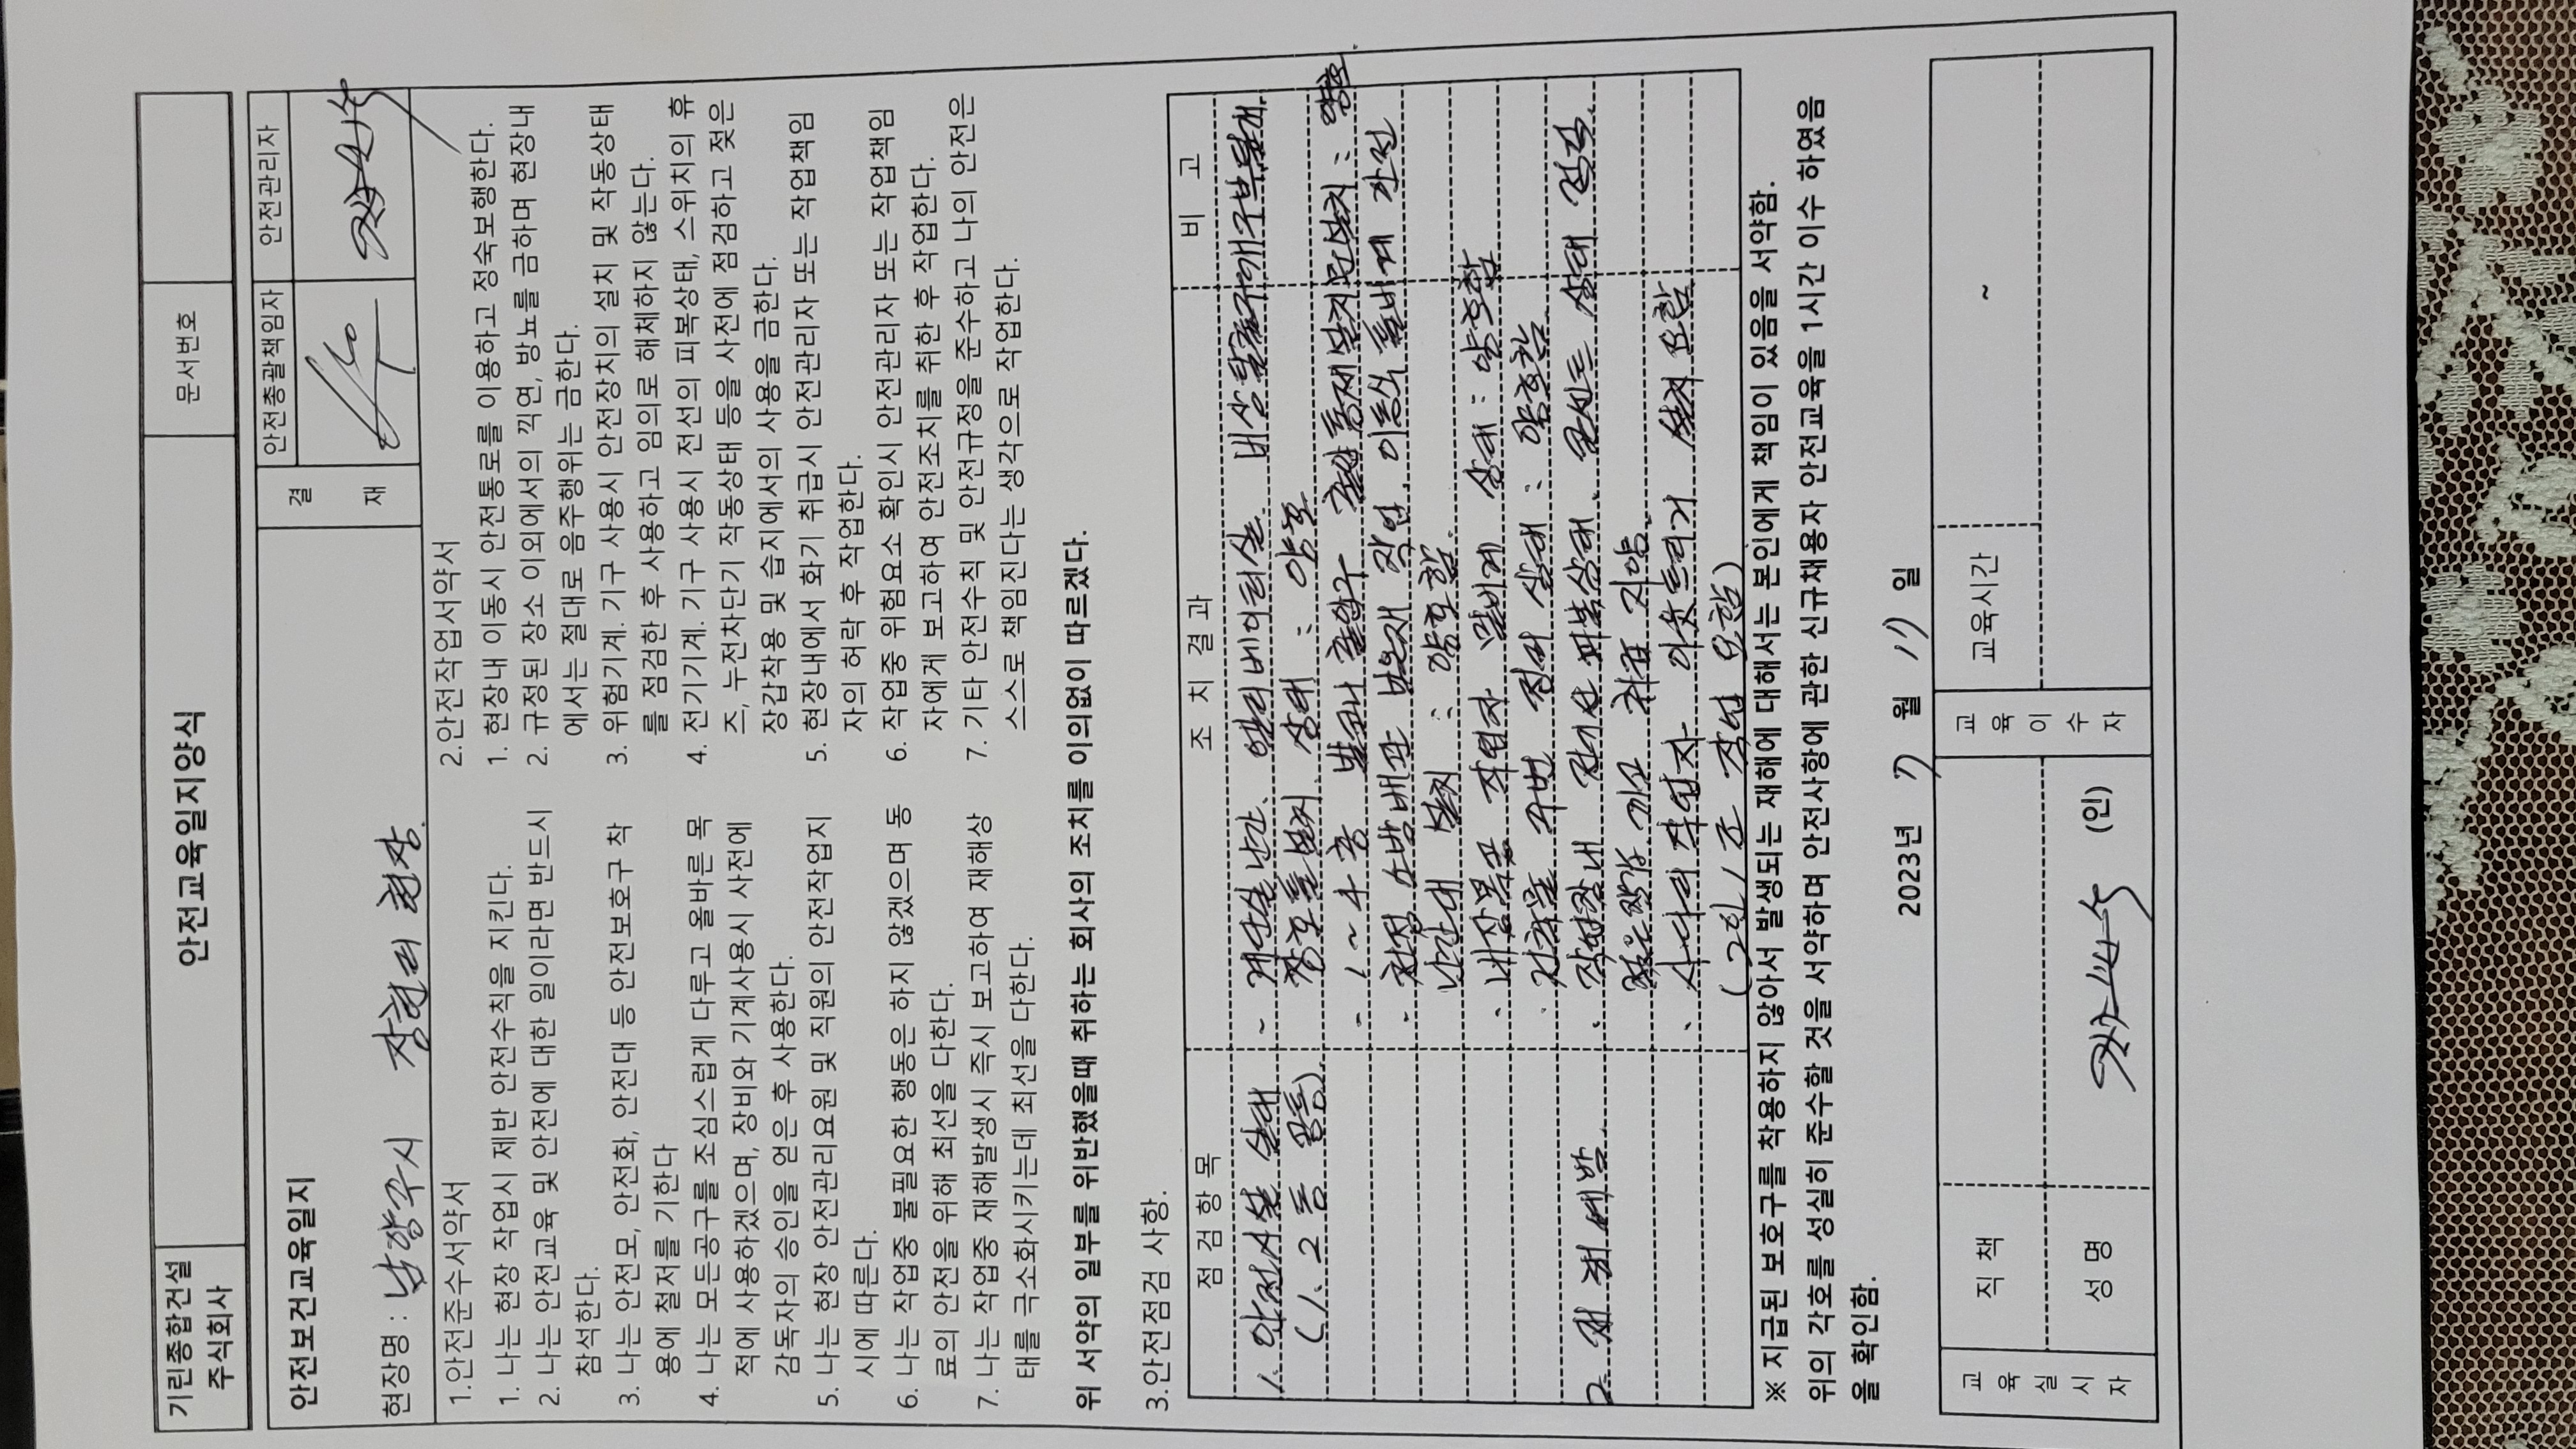 기린종합건설
주식회사
안전교육일지양식
문서번호
안전보건교육일지
결
재
안전총괄책임자
안전관리자
현장명 : 남양주시 장현리 현장.
1.안전준수서약서
1. 나는 현장 작업시 제반 안전수칙을 지킨다.
2. 나는 안전교육 및 안전에 대한 일이라면 반드시
참석한다.
3. 나는 안전모, 안전화, 안전대 등 안전보호구 착
용에 철저를 기한다
4. 나는 모든공구를 조심스럽게 다루고 올바른 목
적에 사용하겠으며, 장비와 기계사용시 사전에
감독자의 승인을 얻은 후 사용한다.
5. 나는 현장 안전관리요원 및 직원의 안전작업지
시에 따른다.
6. 나는 작업중 불필요한 행동은 하지 않겠으며 동
료의 안전을 위해 최선을 다한다.
7. 나는 작업중 재해발생시 즉시 보고하여 재해상
태를 극소화시키는데 최선을 다한다.
2.안전작업서약서
1. 현장내 이동시 안전통로를 이용하고 정숙보행한다.
2. 규정된 장소 이외에서의 끽연, 방뇨를 금하며 현장내
에서는 절대로 음주행위는 금한다.
3. 위험기계. 기구 사용시 안전장치의 설치 및 작동상태
를 점검한 후 사용하고 임의로 해체하지 않는다.
4. 전기기계. 기구 사용시 전선의 피복상태, 스위치의 휴
즈, 누전차단기 작동상태 등을 사전에 점검하고 젖은
장갑착용 및 습지에서의 사용을 금한다.
5. 현장내에서 화기 취급시 안전관리자 또는 작업책임
자의 허락 후 작업한다.
6. 작업중 위험요소 확인시 안전관리자 또는 작업책임
자에게 보고하여 안전조치를 취한 후 작업한다.
7. 기타 안전수칙 및 안전규정을 준수하고 나의 안전은
스스로 책임진다는 생각으로 작업한다.
위 서약의 일부를 위반했을때 취하는 회사의 조치를 이의없이 따르겠다.
3.안전점검 사항.
점 검 항 목
조 치 결 과
비 고
1. 안전시설 실태 - 계단실 난간. 엘리베이터실. 비상탈출구 개구부덮개.
(1. 2동 공통). 창호틀설치 상태 : 양호
- 1~4층 발코니 출입구 출입통제 설치 : 양호.
- 천정 소방배관 보온재 작업. 이동식 틀비계 안전
난간대 설치 : 양호함.
- 내장목공 작업자 말비계 상태 : 양호함
- 건축물 주변 정리 상태 : 양호함.
2. 재해예방. - 작업장내 전기선 피복상태. 콘센트 상태 점검.
젖은장갑 끼고 취급 지양.
- 사다리작업자 아웃트리거 설치 요함
(2인1조 작업 요함)
※ 지급된 보호구를 착용하지 않아서 발생되는 재해에 대해서는 본인에게 책임이 있음을 서약함.
위의 각호를 성실히 준수할 것을 서약하며 안전사항에 관한 신규채용자 안전교육을 1시간 이수 하였음
을 확인함.
2023년 7월 17일
교육실시자
직 책
성 명
(인)
교육이수자
교육시간
~